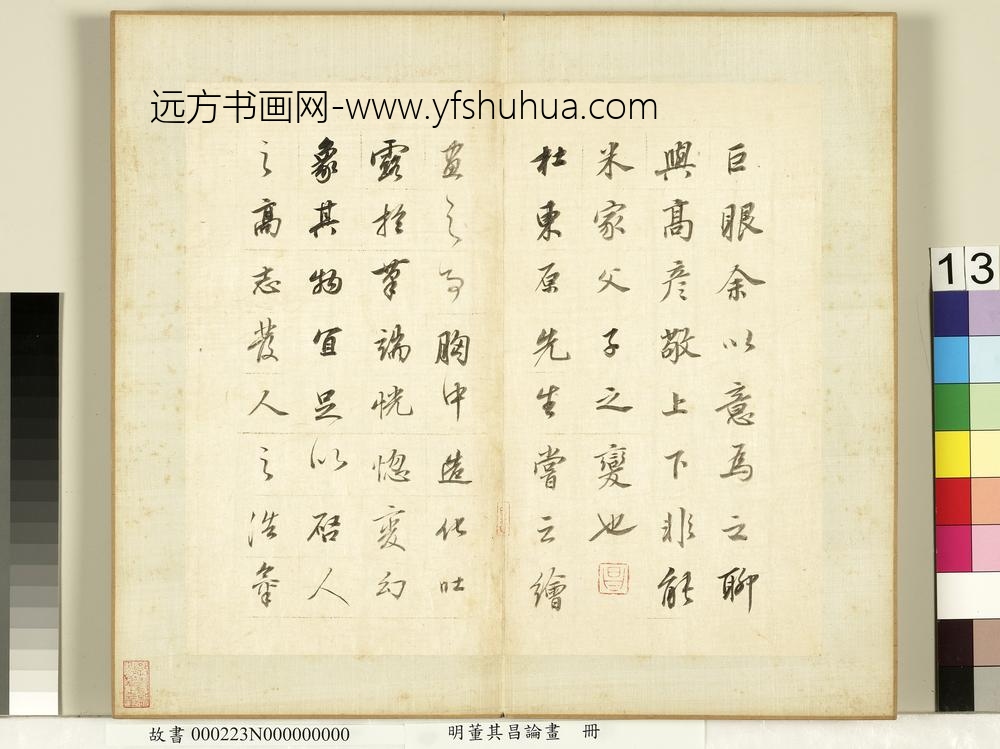 远方书画网-www.yfshuhua.com
巨眼余以意為之聊
與高彥敬上下非能
米家父子之變也
杜東原先生嘗云繪
畫之事胸中造化吐
露於筆端恍惚變幻
象其物宜足以啓人
之高志發人之浩氣
13
故書 000223N000000000
明董其昌論畫 冊